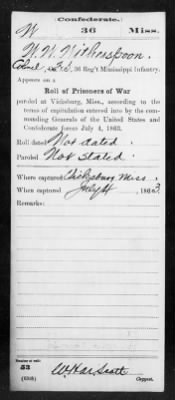 Confederate.
W 36 Miss.
W. W. Witherspoon.
Colonel 36 Reg't Mississippi Infantry.
Appears on a
Roll of Prisoners of War
paroled at Vicksburg, Miss., according to the
terms of capitulation entered into by the com-
manding Generals of the United States and
Confederate forces July 4, 1863.
Roll dated Not dated.
Paroled Not Stated.
Where captured Vicksburg Miss.
When captured July 4, 1863.
Remarks:
Number of roll:
53
W. Har Scott
Copyist.